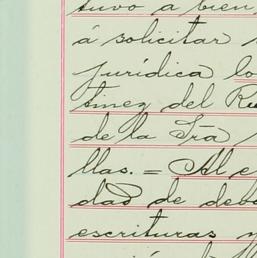 tuvo a bien
á solicitar
jurídica lo
tinez del Ru
de la Sra
llas. = Al e
dad de deb
escrituras